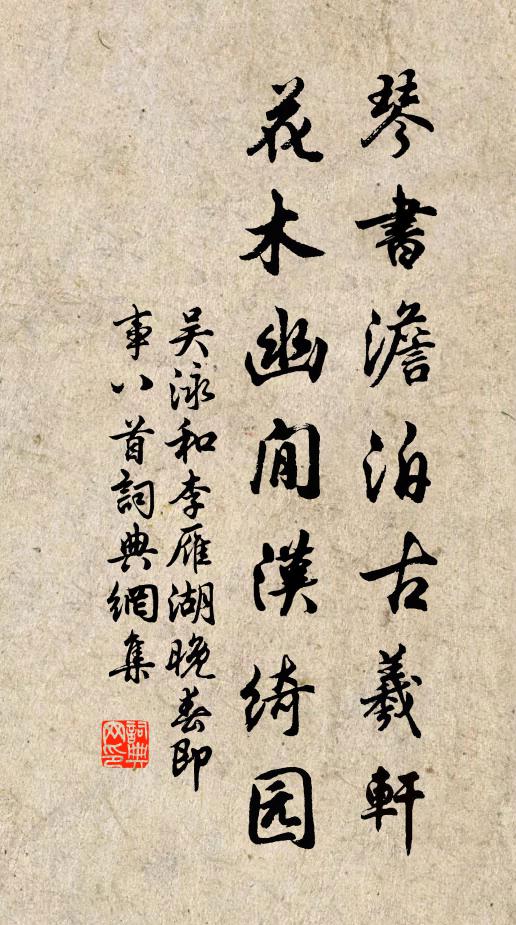 琴書澹泊古羲軒
花木幽閒漢綺园
吴泳和李雁湖晚春即
事八首詞典網集
詞典网印